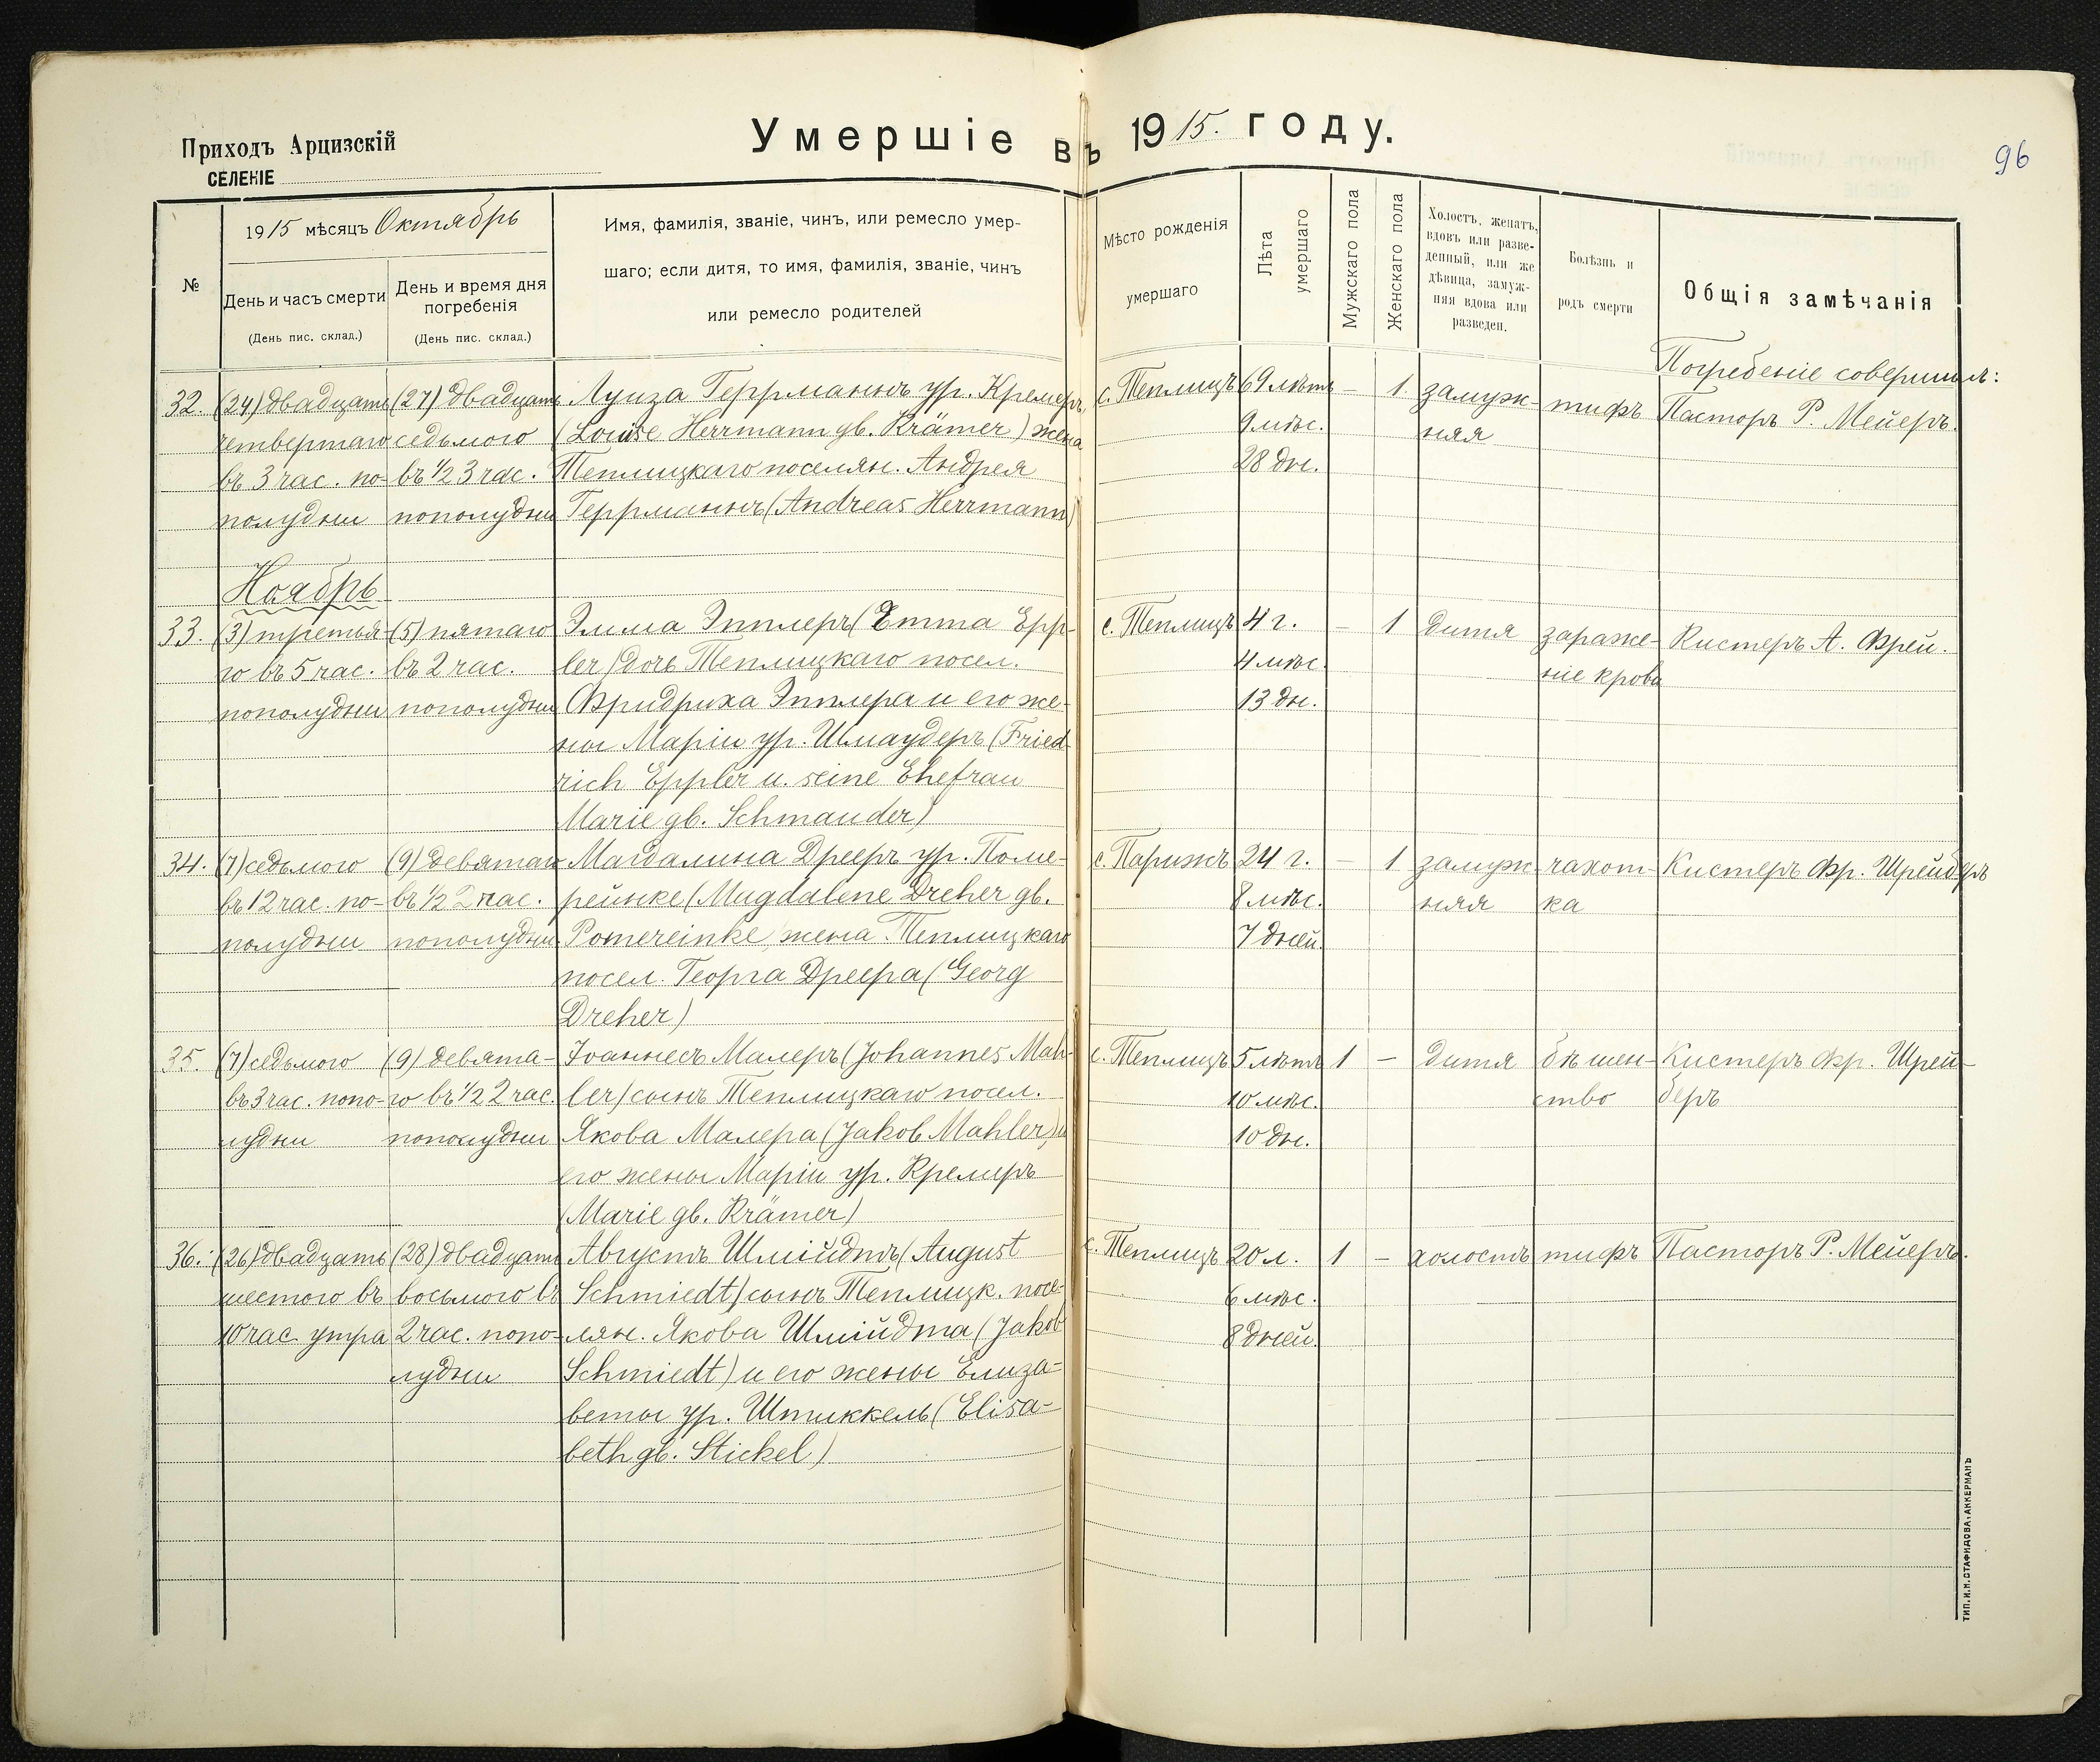 Приходъ Арцизскій
СЕЛЕНІЕ
Умершіе въ 1915. году.
96
№
1915 мѣсяцъ Октябрь
День и часъ смерти
(День пис. склад.)
День и время дня
погребенія
(День пис. склад.)
Имя, фамилія, званіе, чинъ, или ремесло умер-
шаго; если дитя, то имя, фамилія, званіе, чинъ
или ремесло родителей
Мѣсто рожденія
умершаго
Лѣта
умершаго
Мужскаго пола
Женскаго пола
Холостъ, женатъ,
вдовъ или разве-
денный, или же
дѣвица, замуж-
няя вдова или
разведен.
Болѣзнь и
родъ смерти
Общія замѣчанія
Погребеніе совершилъ:
32.
(24) двадцать
четвертаго
въ 3 час. по-
полудни
(27) двадцать
седьмого
въ ½ 3 час.
пополудни
Луиза Геррманнъ ур. Кремеръ,
(Louise Herrmann gb. Krämer) жена
Теплицкаго поселян. Андрея
Геррманнъ (Andreas Herrmann)
с. Теплицъ
69 лѣтъ
9 мѣс.
28 дн.
—
1.
замуж-
няя
тифъ
Пасторъ Р. Мейеръ.
Ноябрь
33.
(3) третья-
го въ 5 час.
пополудни
(5) пятаго
въ 2 час.
пополудни
Эмма Эпплеръ (Emma Epp-
ler) дочь Теплицкаго посел.
Фридриха Эпплера и его же-
ны Маріи ур. Шмаудеръ (Fried-
rich Eppler u. seine Ehefrau
Marie gb. Schmauder)
с. Теплицъ
4 г.
4 мѣс.
13 дн.
—
1
дитя
зараже-
ніе крови
Кистеръ А. Фрей.
34.
(7) седьмого
въ 12 час. по-
полудни
(9) девятаго
въ ½ 2 час.
пополудни
Магдалина Дрееръ ур. Поме-
рейнке (Magdalene Dreher gb.
Pomereinke, жена Теплицкаго
посел. Георга Дреера (Georg
Dreher)
с. Парижъ
24 г.
8 мѣс.
7 дней
—
1
замуж-
няя
чахот-
ка
Кистеръ Фр. Шрейберъ
35.
(7) седьмого
въ 3 час. попо-
лудни
(9) девята-
го въ ½ 2 час.
пополудни
Іоаннесъ Малеръ (Johannes Mah-
ler) сынъ Теплицкаго посел.
Якова Малера (Jakob Mahler) и
его жены Маріи ур. Кремеръ
(Marie gb. Krämer)
с. Теплицъ
5 лѣтъ
10 мѣс.
10 дн.
1
—
дитя
бѣшен-
ство
Кистеръ Фр. Шрей-
беръ
36.
(26) двадцать
шестого въ
10 час утра
(28) двадцать
восьмого въ
2 час. попо-
лудни
Августъ Шмійдтъ (August
Schmiedt) сынъ Теплицк. посе-
лян. Якова Шмійдта (Jakob
Schmiedt) и его жены Елиза-
веты ур. Штиккель (Elisa-
beth gb. Stickel)
с. Теплицъ
20 л.
6 мѣс.
8 дней
1
—
холостъ
тифъ
Пасторъ Р. Мейеръ.
ТИП. И. Н. СТАФИДОВА, АККЕРМАНЪ